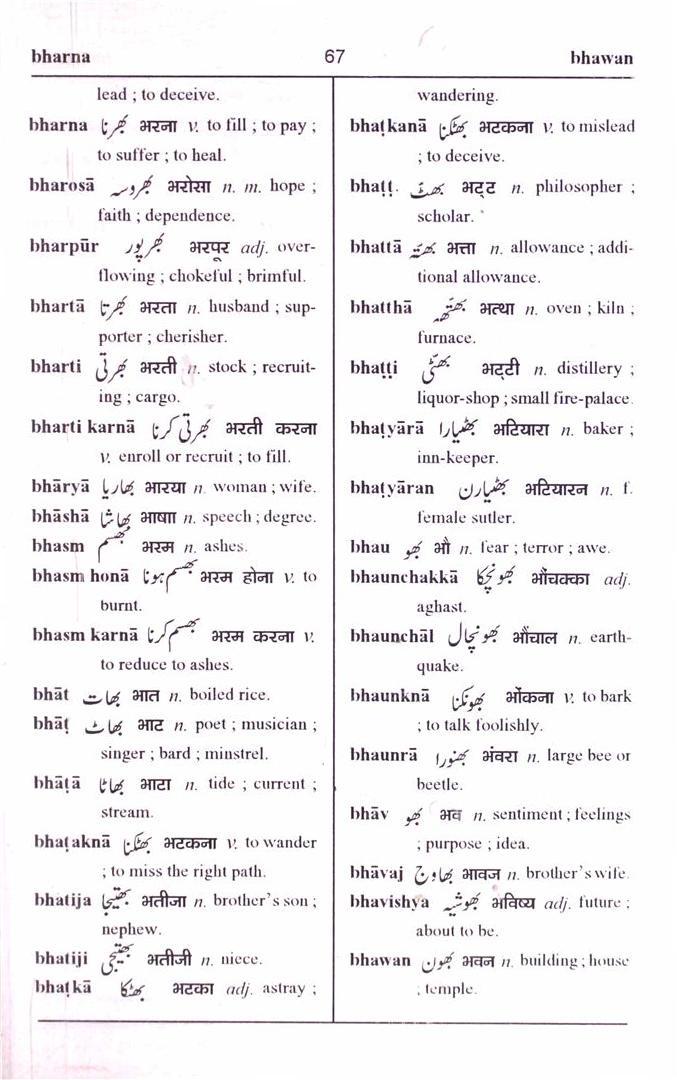 bharna 67 bhawan
lead ; to deceive.
bharna بھرنا भरना v. to fill ; to pay ;
to suffer ; to heal.
bharosā بھروسہ भरोसा n. m. hope ;
faith ; dependence.
bharpūr بھرپور भरपूर adj. over-
flowing ; chokeful ; brimful.
bhartā بھرتا भरता n. husband ; sup-
porter ; cherisher.
bharti بھرتی भरती n. stock ; recruit-
ing ; cargo.
bharti karnā بھرتی کرنا भरती करना
v. enroll or recruit ; to fill.
bhāryā بھاریا भारया n. woman ; wife.
bhāshā بھاشا भाषाा n. speech ; degree.
bhasm بھسم भस्म n. ashes.
bhasm honā بھسم ہونا भस्म होना v. to
burnt.
bhasm karnā بھسم کرنا भस्म करना v.
to reduce to ashes.
bhāt بھات भात n. boiled rice.
bhāṭ بھاٹ भाट n. poet ; musician ;
singer ; bard ; minstrel.
bhāṭā بھاٹا भाटा n. tide ; current ;
stream.
bhaṭaknā بھٹکنا भटकना v. to wander
; to miss the right path.
bhatija بھتیجا भतीजा n. brother's son ;
nephew.
bhatiji بھتیجی भतीजी n. niece.
bhaṭkā بھٹکا भटका adj. astray ;
wandering.
bhaṭkanā بھٹکنا भटकना v. to mislead
; to deceive.
bhaṭṭ. بھٹ भट्ट n. philosopher ;
scholar.
bhattā بھتہ भत्ता n. allowance ; addi-
tional allowance.
bhatthā بھتھہ भत्था n. oven ; kiln ;
furnace.
bhaṭṭi بھٹی भट्टी n. distillery ;
liquor-shop ; small fire-palace.
bhaṭyārā بھٹیارا भटियारा n. baker ;
inn-keeper.
bhaṭyāran بھٹیارن भटियारन n. f.
female sutler.
bhau بھو भौ n. fear ; terror ; awe.
bhaunchakkā بھونچکا भौंचक्का adj.
aghast.
bhaunchāl بھونچال भौंचाल n. earth-
quake.
bhaunknā بھونکنا भोंकना v. to bark
; to talk foolishly.
bhaunrā بھنورا भंवरा n. large bee or
beetle.
bhāv بھو भव n. sentiment ; feelings
; purpose ; idea.
bhāvaj بھاوج भावज n. brother's wife.
bhavishya بھوشیہ भविष्य adj. future ;
about to be.
bhawan بھون भवन n. building ; house
; temple.